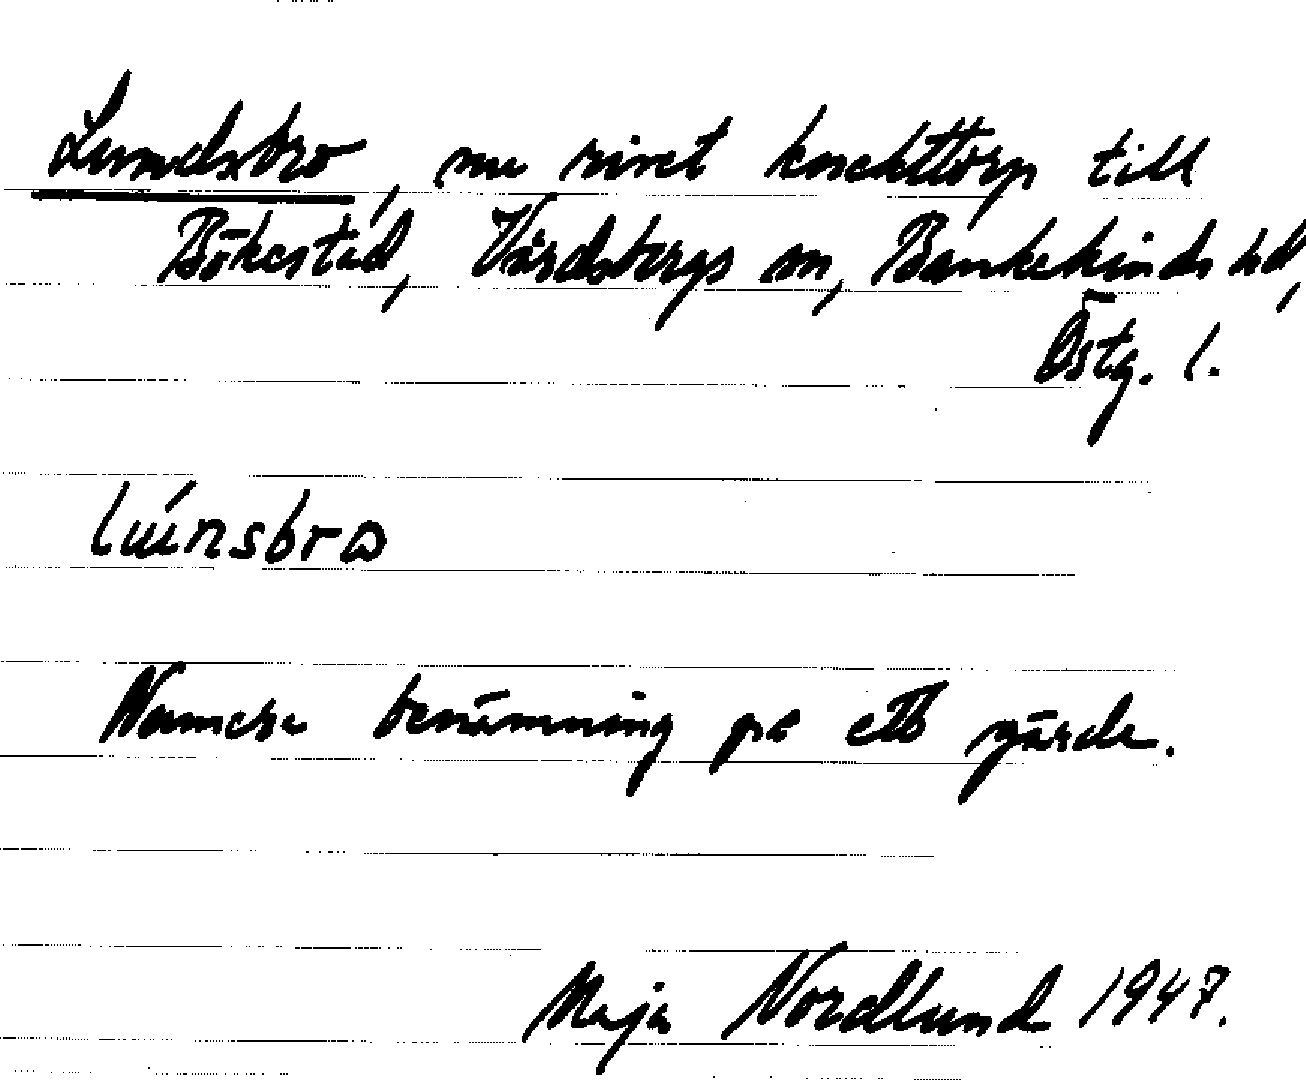 Lundsbro, nu rivet knekttorp till
Bökestad, Vårdsbergs sn, Bankekinds hd,
Östg. l.
Numera benämning på ett gärde.
Maja Nordlund 1947.